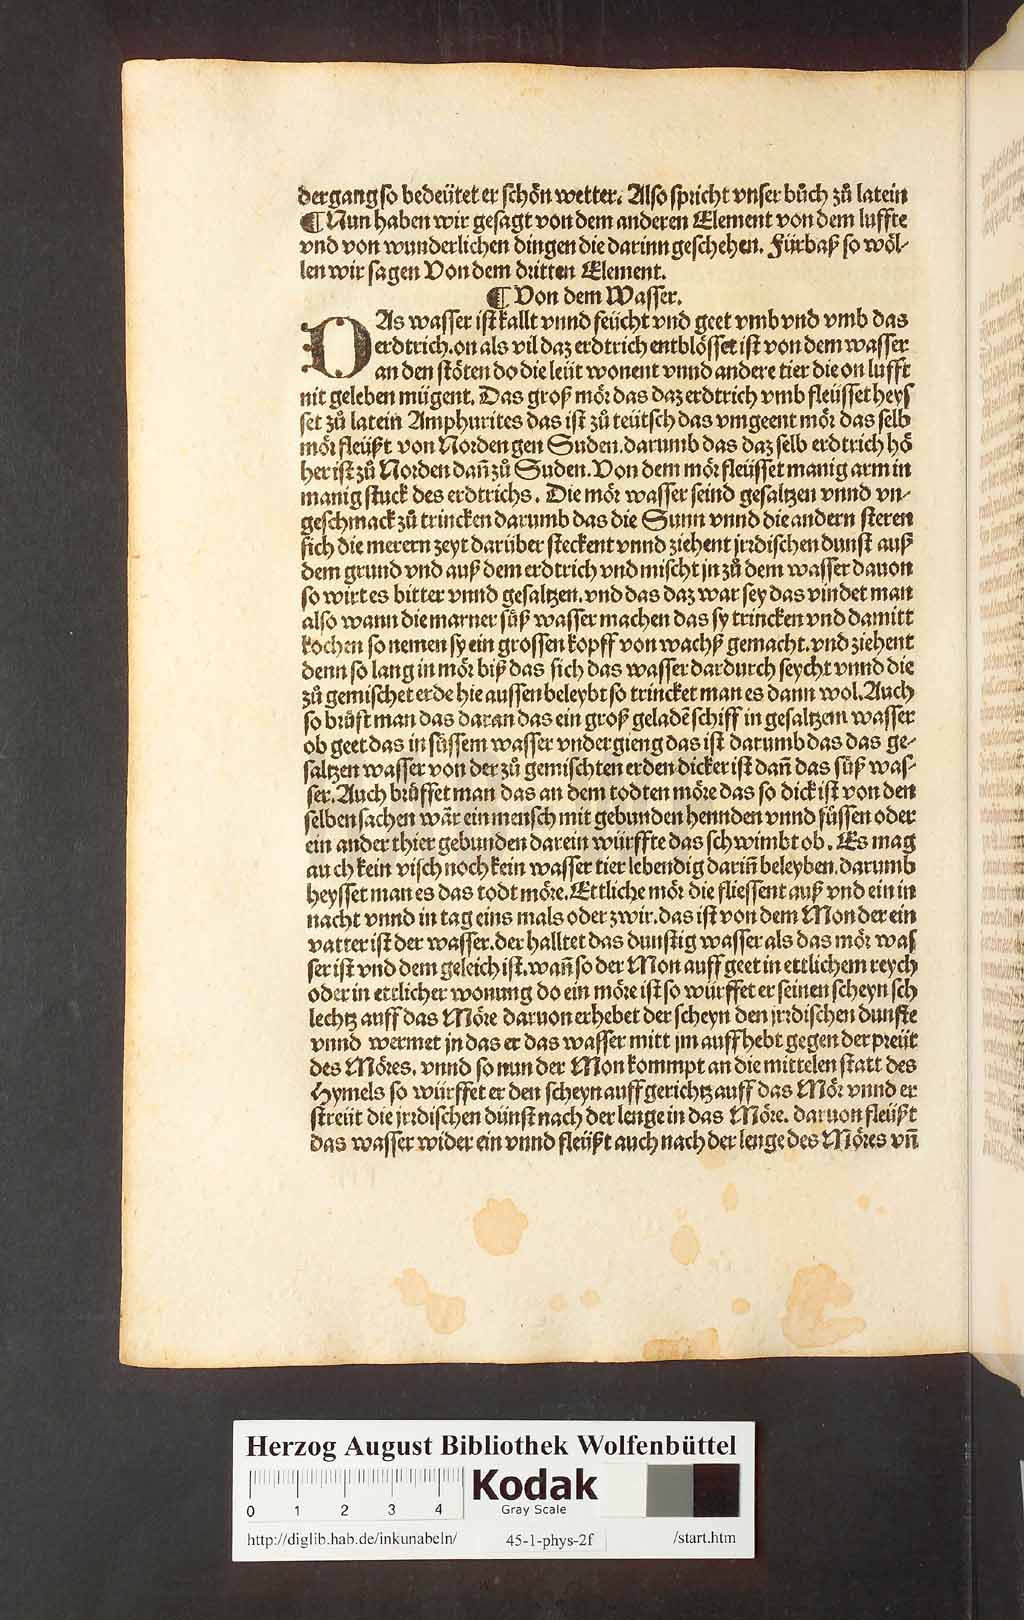 dergang so bedeütet er schön wetter. Also spricht vnser bůch zů latein
¶ Nun haben wir gesagt von dem anderen Element von dem luffte
vnd von wunderlichen dingen die darinn geschehen. Fürbaß so wöl-
len wir sagen Von dem dritten Element.
¶ Von dem Wasser.
DAs wasser ist kallt vnnd feücht vnd geet vmb vnd vmb das
erdtrich. on als vil daz erdtrich entblösset ist von dem wasser
an den stöten do die leüt wonent vnnd andere tier die on lufft
nit geleben mügent. Das groß mör das daz erdtrich vmb fleüsset heys
set zů latein Amphurites das ist zů teütsch das vmgeent mör das selb
mör fleüßt von Norden gen Suden. darumb das daz selb erdtrich hö
her ist zů Norden dañ zů Suden. Von dem mör fleüsset manig arm in
manig stuck des erdtrichs. Die mör wasser seind gesaltzen vnnd vn-
geschmack zů trincken darumb das die Sunn vnnd die andern steren
sich die merern zeyt darüber steckent vnnd ziehent jrrdischen dunst auß
dem grund vnd auß dem erdtrich vnd mischt jn zů dem wasser dauon
so wirt es bitter vnnd gesaltzen. vnd das daz war sey das vindet man
also wann die marner sůß wasser machen das sy trincken vnd damitt
kochen so nemen sy ein grossen kopff von wachß gemacht. vnd ziehent
denn so lang in mör biß das sich das wasser dardurch seycht vnnd die
zů gemischet erde hie aussen beleybt so trincket man es dann wol. Auch
so brůft man das daran das ein groß geladē schiff in gesaltzem wasser
ob geet das in sůssem wasser vndergieng das ist darumb das das ge-
saltzen wasser von der zů gemischten erden dicker ist dañ das sůß was-
ser. Auch brůffet man das an dem todten möre das so dick ist von den
selben sachen wår ein mensch mit gebunden hennden vnnd füssen oder
ein ander thier gebunden darein würffte das schwimbt ob. Es mag
auch kein visch noch kein wasser tier lebendig dariñ beleyben. darumb
heysset man es das todt möre. Ettliche mör die fliessent auß vnd ein in
nacht vnnd in tag eins mals oder zwir. das ist von dem Mon der ein
vatter ist der wasser. der halltet das dunstig wasser als das mör was
ser ist vnd dem geleich ist. wañ so der Mon auff geet in ettlichem reych
oder in ettlicher wonung do ein möre ist so würffet er seinen scheyn sch
lechtz auff das Möre daruon erhebet der scheyn den jrrdischen dunste
vnnd wermet jn das er das wasser mitt jm auffhebt gegen der preüt
des Möres. vnnd so nun der Mon kommpt an die mittelen statt des
Hymels so würffet er den scheyn auffgerichtz auff das Mör vnnd er
streüt die jrrdischen dünst nach der lenge in das Möre. daruon fleüßt
das wasser wider ein vnnd fleüßt auch nach der lenge des Möres vñ
Herzog August Bibliothek Wolfenbüttel
0 1 2 3 4
Kodak
Gray Scale
http://diglib.hab.de/inkunabeln/ 45-1-phys-2f /start.htm